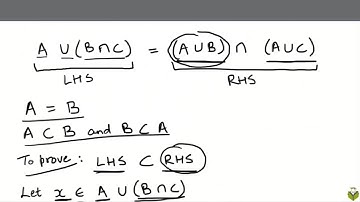 A ∪ (B ∩ C) = (A ∪ B) ∩ (A ∪ C)
LHS RHS
A = B
A ⊂ B and B ⊂ A
To prove : LHS ⊂ RHS
Let x ∈ A ∪ (B ∩ C)